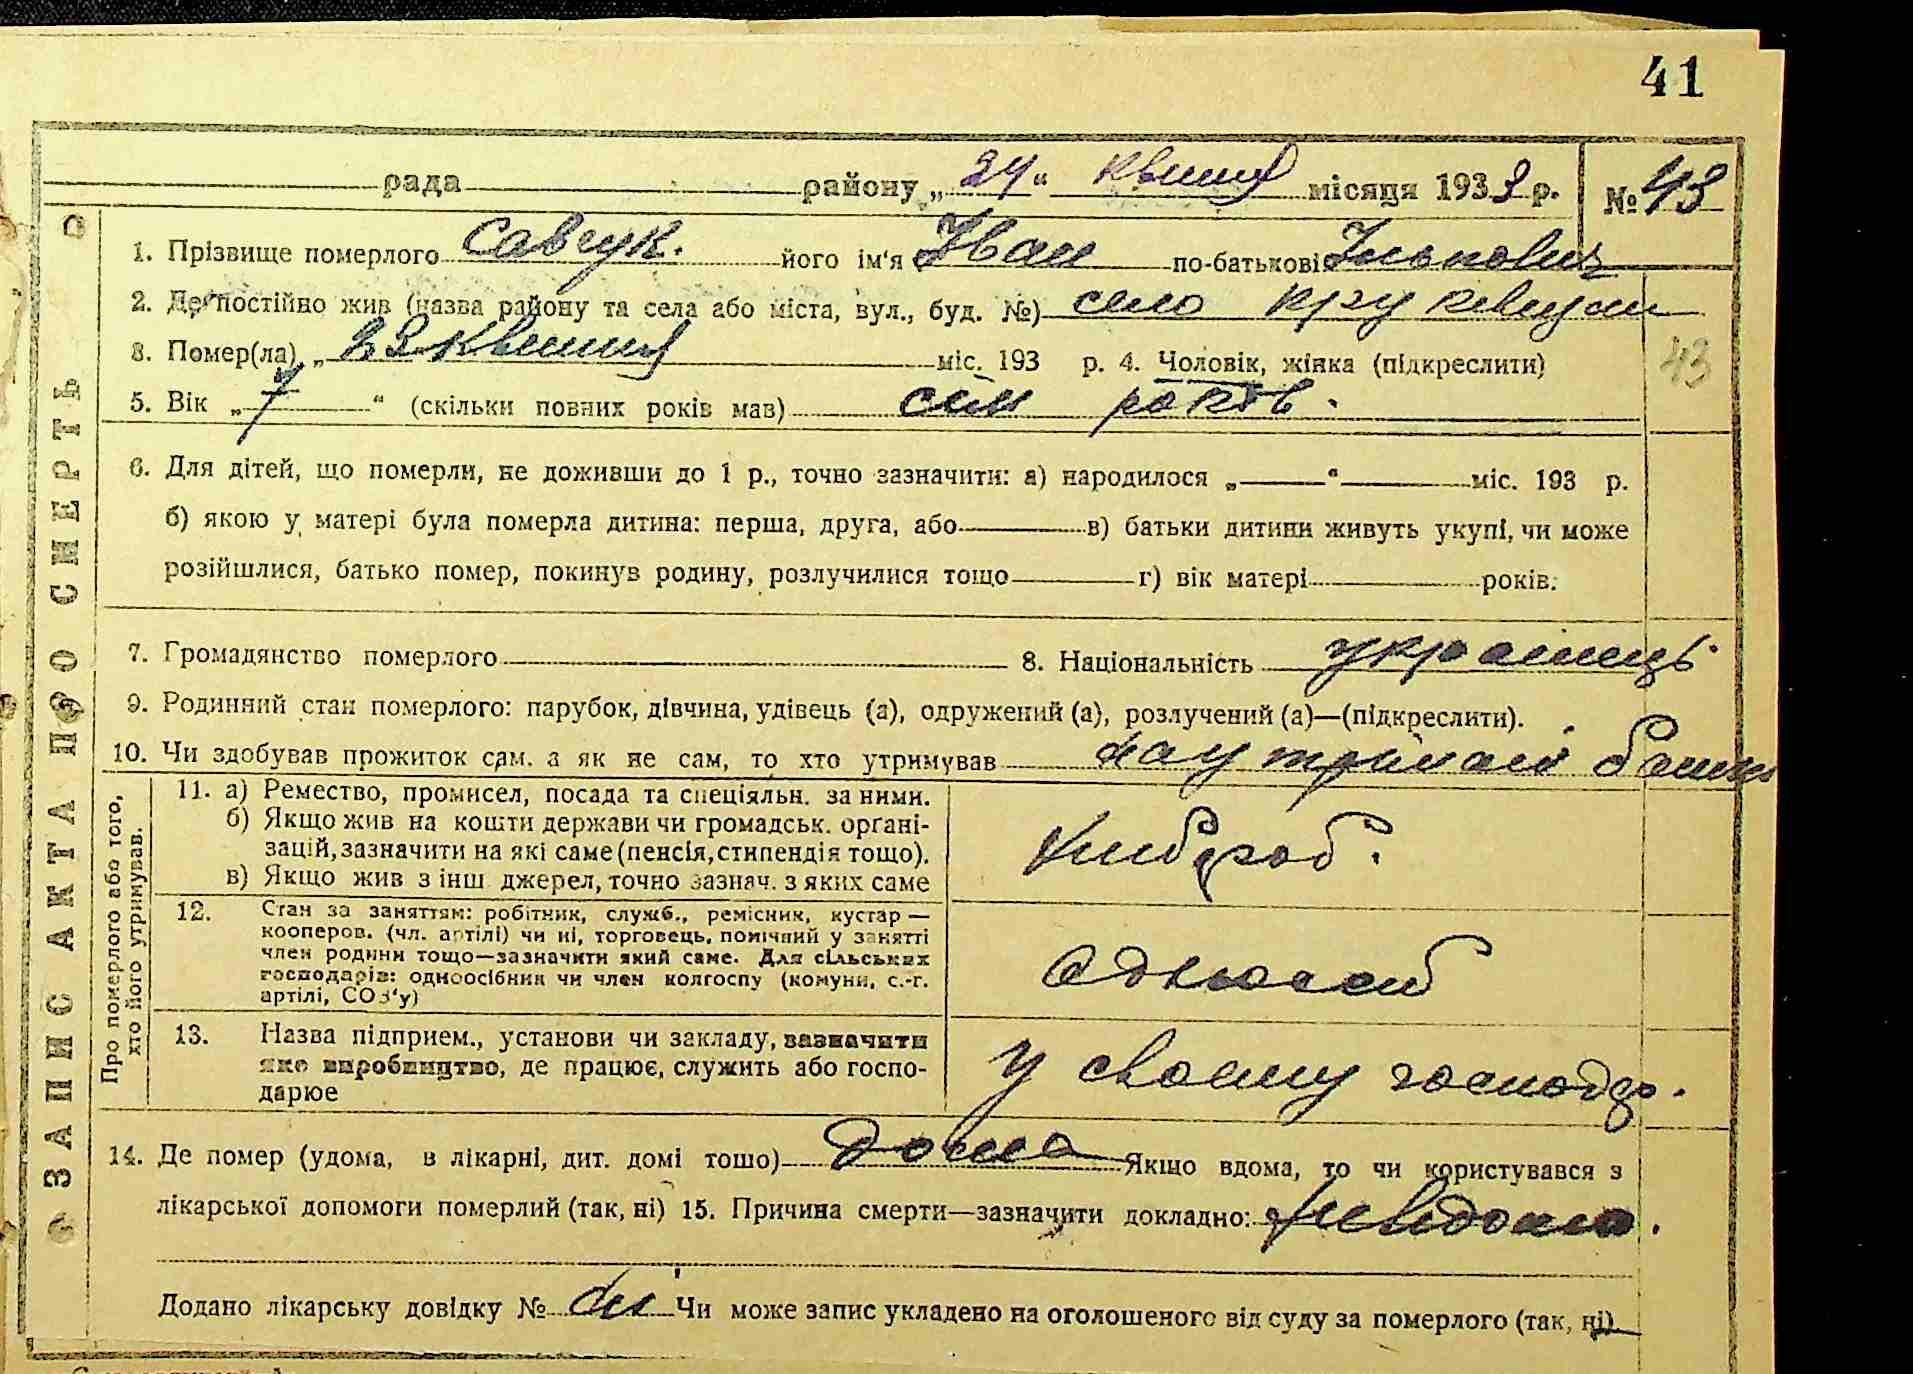 41
рада районy „24“ квітня місяця 1933 р. № 43
1. Прізвище померлого Савчук. його ім'я Іван по-батькові Ількович
2. Де постійно жив (назва району та села або міста, вул., буд. №) село
3. Помер(ла) „23 квітня міс. 193 р. 4. Чоловік, жінка (підкреслити)
43
5. Вік „7“ (скільки повних років мав) сім років.
6. Для дітей, що померли, не доживши до 1 р., точно зазначити: а) народилося „ “ міс. 193 р.
б) якою у матері була померла дитина: перша, друга, або в) батьки дитини живуть укупі, чи може
розійшлися, батько помер, покинув родину, розлучилися тощо г) вік матері років.
7. Громадянство померлого 8. Національність українець.
9. Родинний стан померлого: парубок, дівчина, удівець (а), одружений (а), розлучений (а)—(підкреслити).
10. Чи здобував прожиток сам, а як не сам, то хто утримував на утриманні батьки
ЗАПИС АКТА ПРО СМЕРТЬ
Про померлого або того,
хто його утримував.
11. а) Ремество, промисел, посада та спеціяльн. за ними.
б) Якщо жив на кошти держави чи громадськ. органі-
зацій, зазначити на які саме (пенсія, стипендія тощо).
в) Якщо жив з інш. джерел, точно зазнач. з яких саме
хлібороб.
12. Стан за заняттям: робітник, служб., ремісник, кустар —
кооперов. (чл. артілі) чи ні, торговець, помічний у занятті
член родини тощо—зазначити який саме. Для сільських
господарів: одноосібник чи член колгоспу (комуни, с.-г.
артілі, СОЗ'у)
одноосіб
13. Назва підприєм., установи чи закладу, зазначити
яке виробництво, де працює, служить або госпо-
дарює
у своєму господар.
14. Де помер (удома, в лікарні, дит. домі тошо) дома Якщо вдома, то чи користувався з
лікарської допомоги померлий (так, ні) 15. Причина смерти—зазначити докладно: невідома.
Додано лікарську довідку № ні Чи може запис укладено на оголошеного від суду за померлого (так, ні)